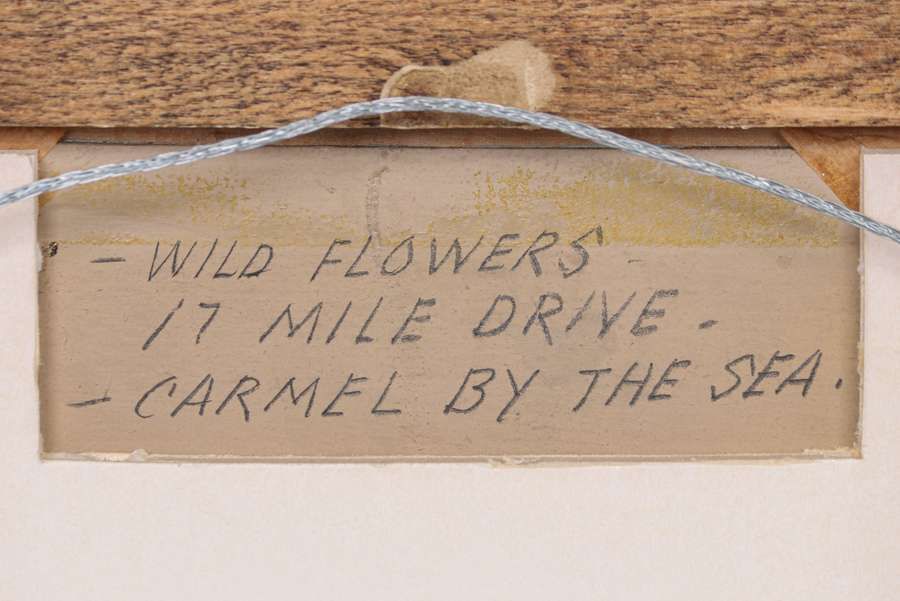 - WILD FLOWERS -
17 MILE DRIVE -
- CARMEL BY THE SEA.